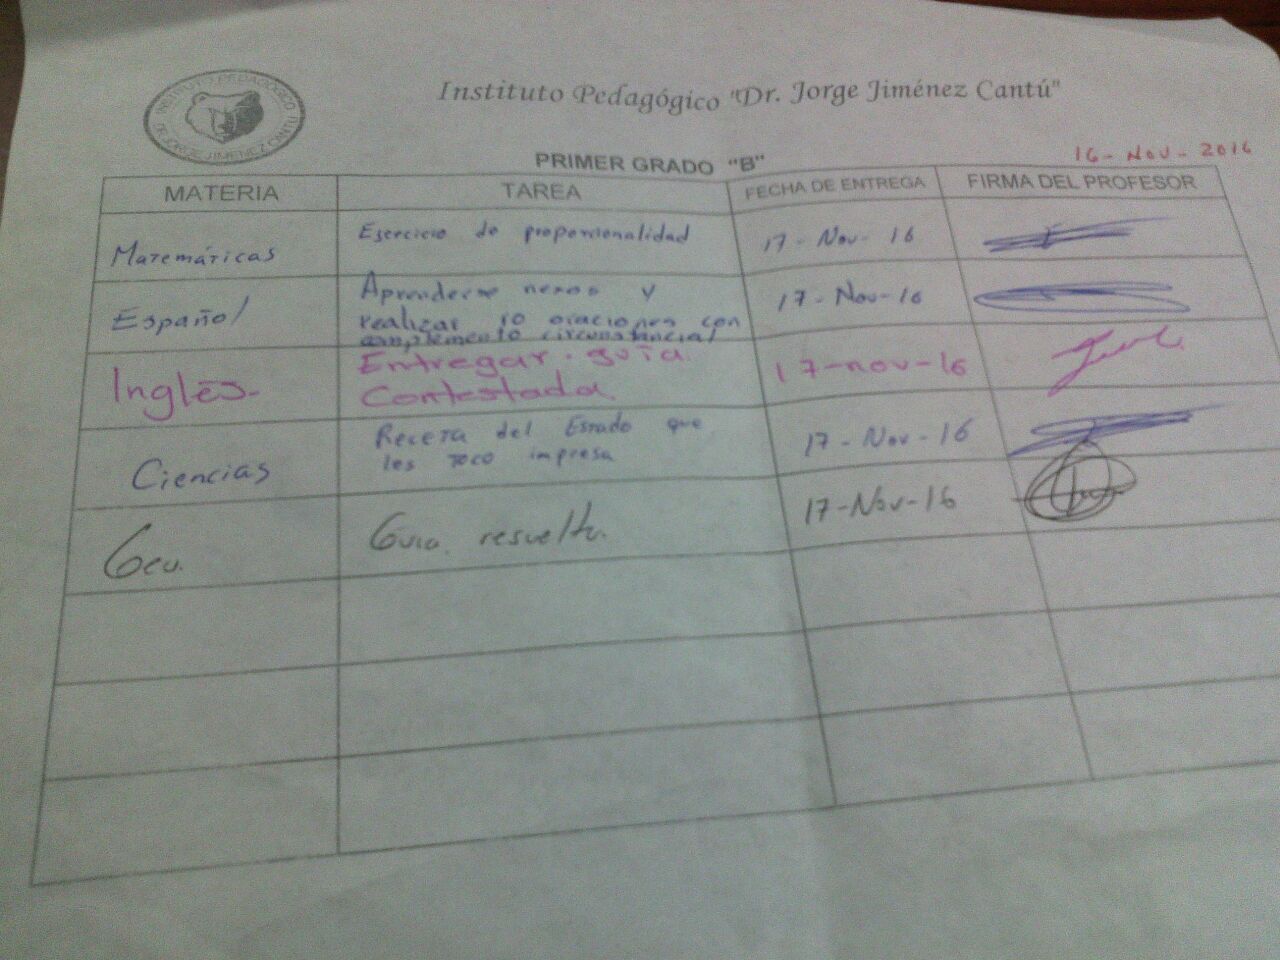 INSTITUTO PEDAGOGICO
DR. JORGE JIMENEZ CANTU
Instituto Pedagógico "Dr. Jorge Jiménez Cantú"
PRIMER GRADO "B"
16-NOV-2016
MATERIA TAREA FECHA DE ENTREGA FIRMA DEL PROFESOR
Matemáticas Ejercicio de proporcionalidad 17-Nov-16
Español Aprenderse nexos y
realizar 10 oraciones con
complemento circunstancial 17-Nov-16
Inglés- Entregar guía
Contestada 17-nov-16
Ciencias Receta del Estado que
les toco impresa 17-Nov-16
Geo. Guia resuelta. 17-Nov-16